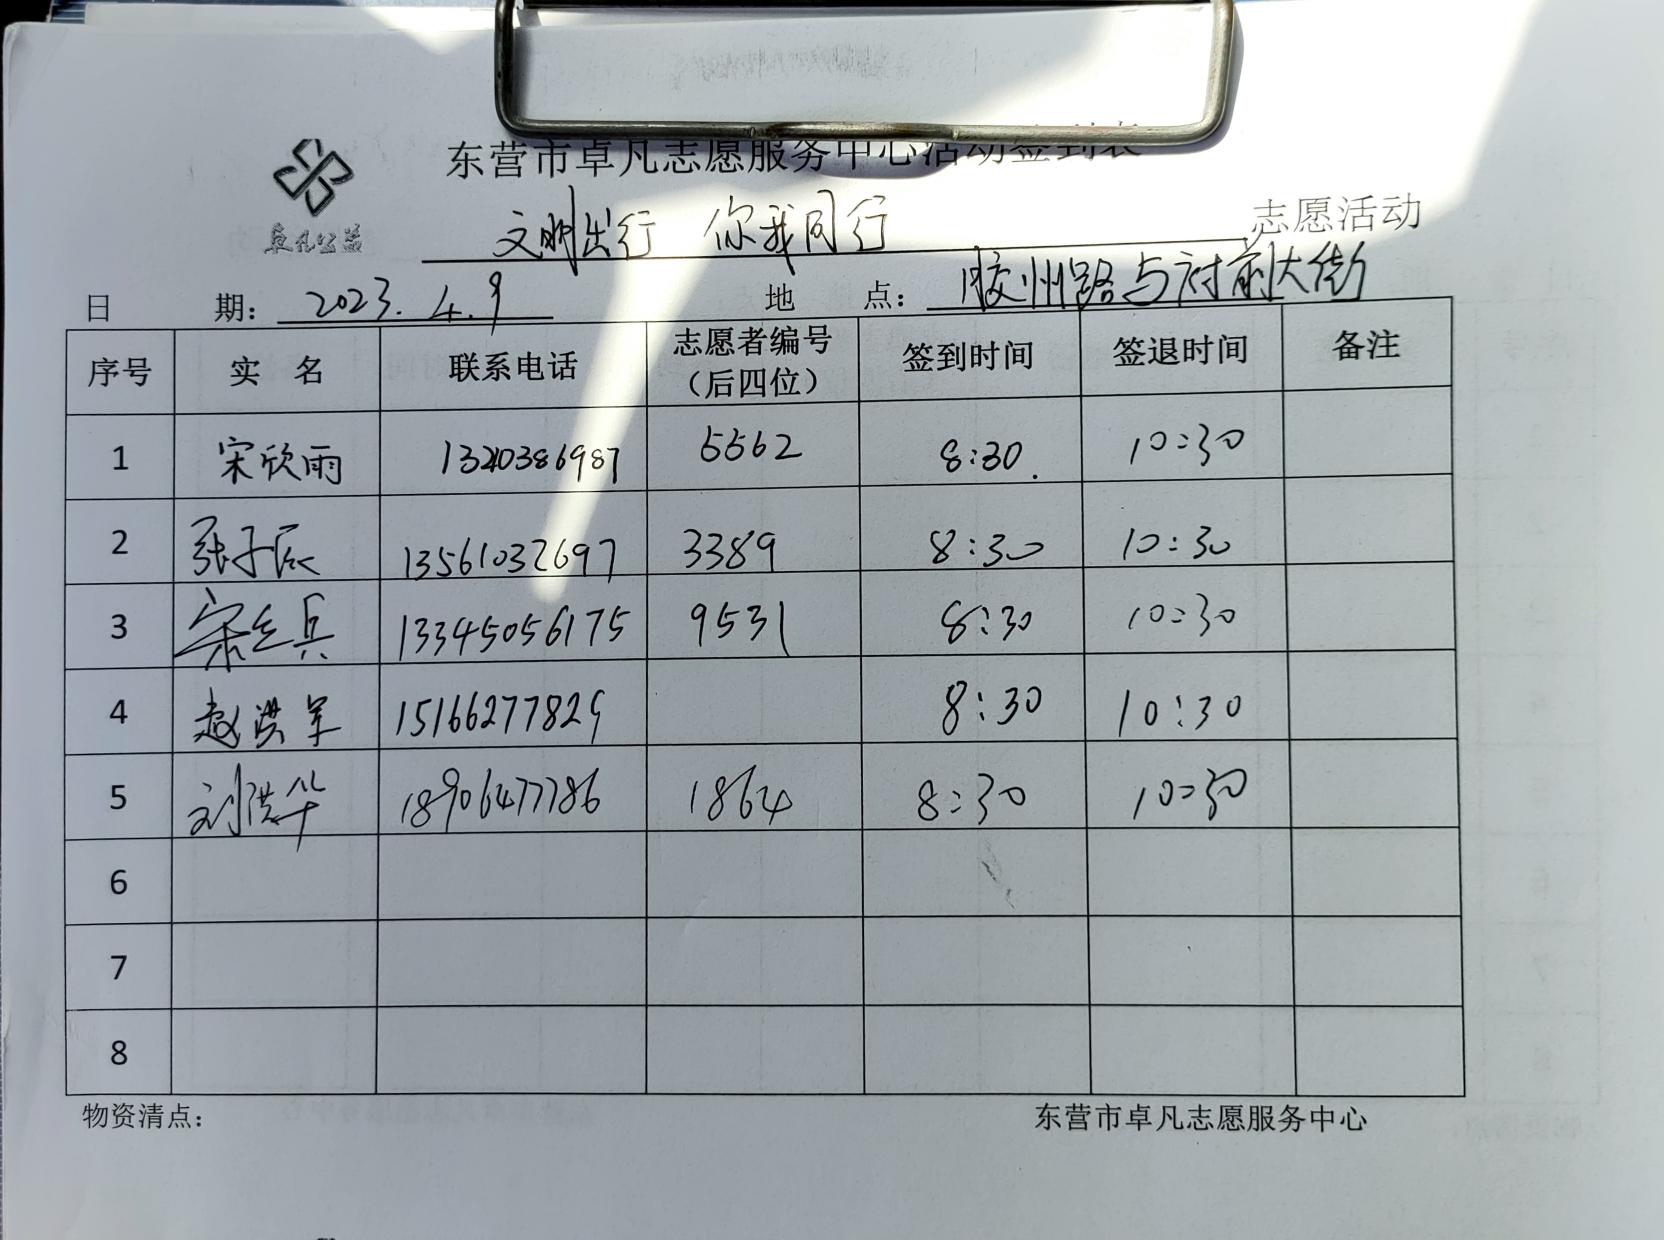 东营市卓凡志愿服务中心活动签到表
卓凡公益
文明出行 你我同行 志愿活动
日 期: 2023.4.9 地 点: 胶州路与府前大街
序号 实 名 联系电话 志愿者编号（后四位） 签到时间 签退时间 备注
1 宋欣雨 1340386987 5562 8:30. 10:30
2 张子辰 13561032697 3389 8:30 10:30
3 宋兵 13345056175 9531 8:30 10:30
4 赵洪军 15166277829 8:30 10:30
5 刘洪华 18906477786 1864 8:30 10:30
6
7
8
物资清点: 东营市卓凡志愿服务中心